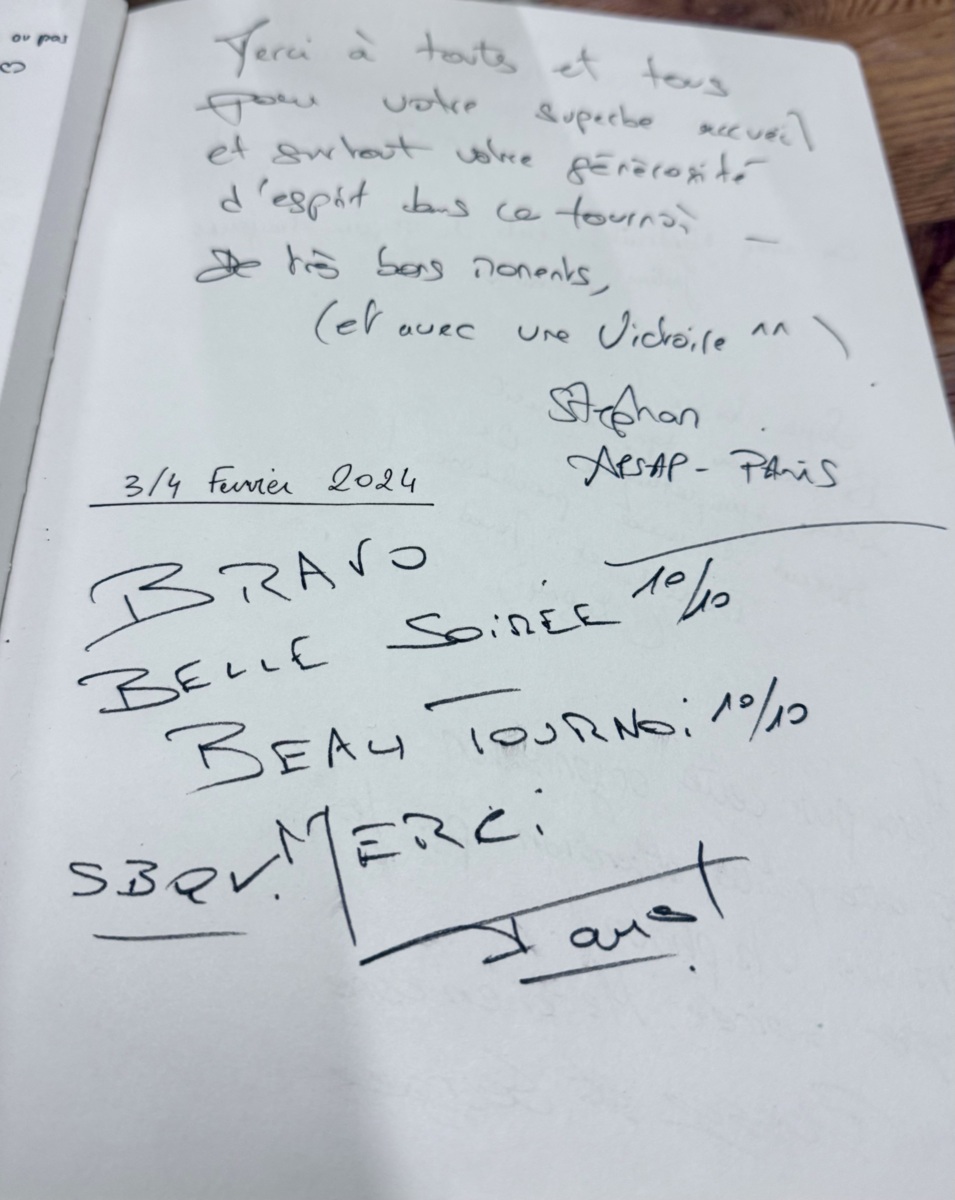 ou pas
Merci à toutes et tous
pour votre superbe accueil
et surtout votre générosité
d'esprit dans ce tournoi _
De très bons moments,
(et avec une Victoire ^^ )
Stéphan
APSAP - PARIS
3/4 Février 2024
BRAVO
BELLE SOIRÉE 10/10
BEAU TOURNOi 10/10
MERCi
SBQV.